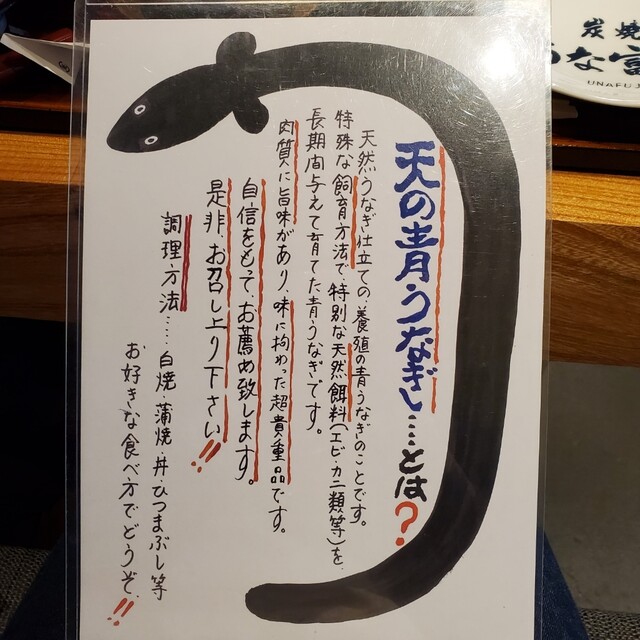 天の青うなぎ…とは?
天然うなぎ仕立ての養殖の青うなぎのことです。
特殊な飼育方法で、特別な天然餌料(エビ・カニ類等)を、
長期間与えて育てた青うなぎです。
肉質に旨味があり、味に拘わった超貴重品です。
自信をもってお薦め致します。
是非、お召し上り下さい!!
調理方法……白焼・蒲焼・丼・ひつまぶし等
お好きな食べ方でどうぞ、!!
炭焼
うな富
UNAFUJ